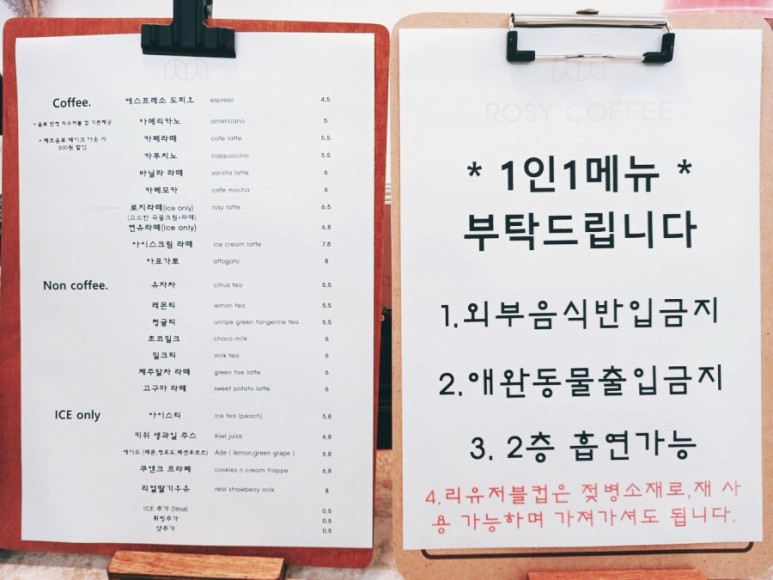 Coffee.
에스프레소 도피오 espreso 4.5
아메리카노 americano 5
카페라떼 cafe latte 5.5
카푸치노 cappuccino 5.5
바닐라 라떼 vanilla latte 6
카페모카 cafe mocha 6
로지라떼(ice only) rosy latte 6.5
(고소한 곡물크림+라떼)
연유라떼(ice only) 6.8
아이스크림 라떼 ice cream latte 7.8
아포가토 affogato 8
Non coffee.
유자차 citrus tea 5.5
레몬티 lemon tea 5.5
청귤티 unripe green tangerine tea 5.5
초코밀크 choco milk 6
밀크티 milk tea 6
제주말차 라떼 green tae latte 6
고구마 라떼 sweet potato latte 6
ICE only
아이스티 ice tea (peach) 5.8
키위 생과일 주스 kiwi juice 6.8
Ade ( lemon,green grape ) 6.8
쿠앤크 프라페 cookies n cream frappe 6.8
리얼딸기우유 real strawberry milk 8
ICE 추가 (16oz) 0.5
휘핑추가 0.5
샷추가 0.5
ROSY COFFEE
* 1인1메뉴 *
부탁드립니다
1.외부음식반입금지
2.애완동물출입금지
3. 2층 흡연가능
4.리유저블컵은 젖병소재로,재 사
용 가능하며 가져가셔도 됩니다.